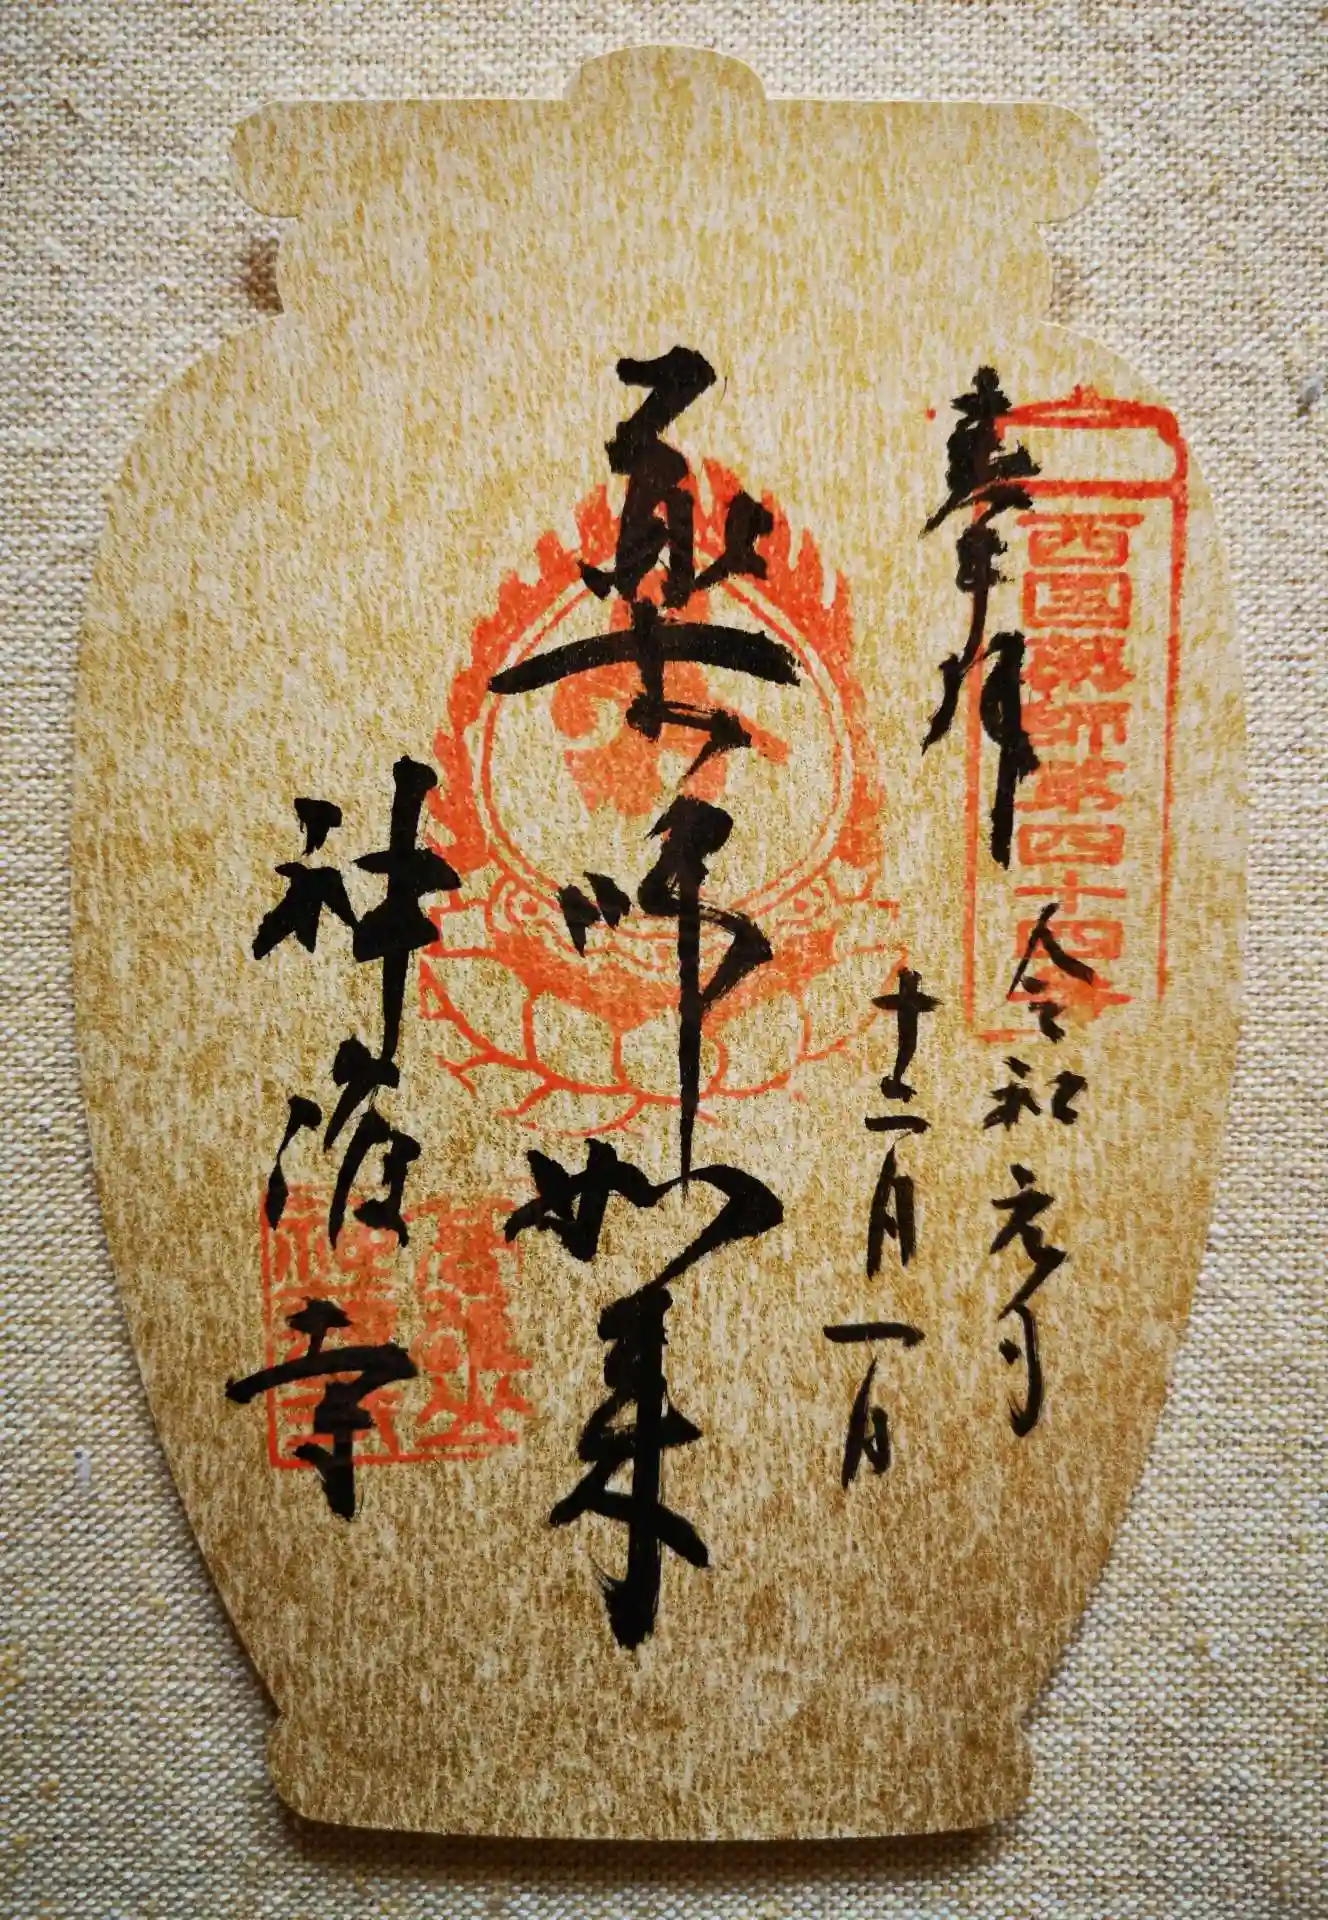 西国薬師第四十四番
奉拝
令和元年
十二月一日
薬師如来
神護寺